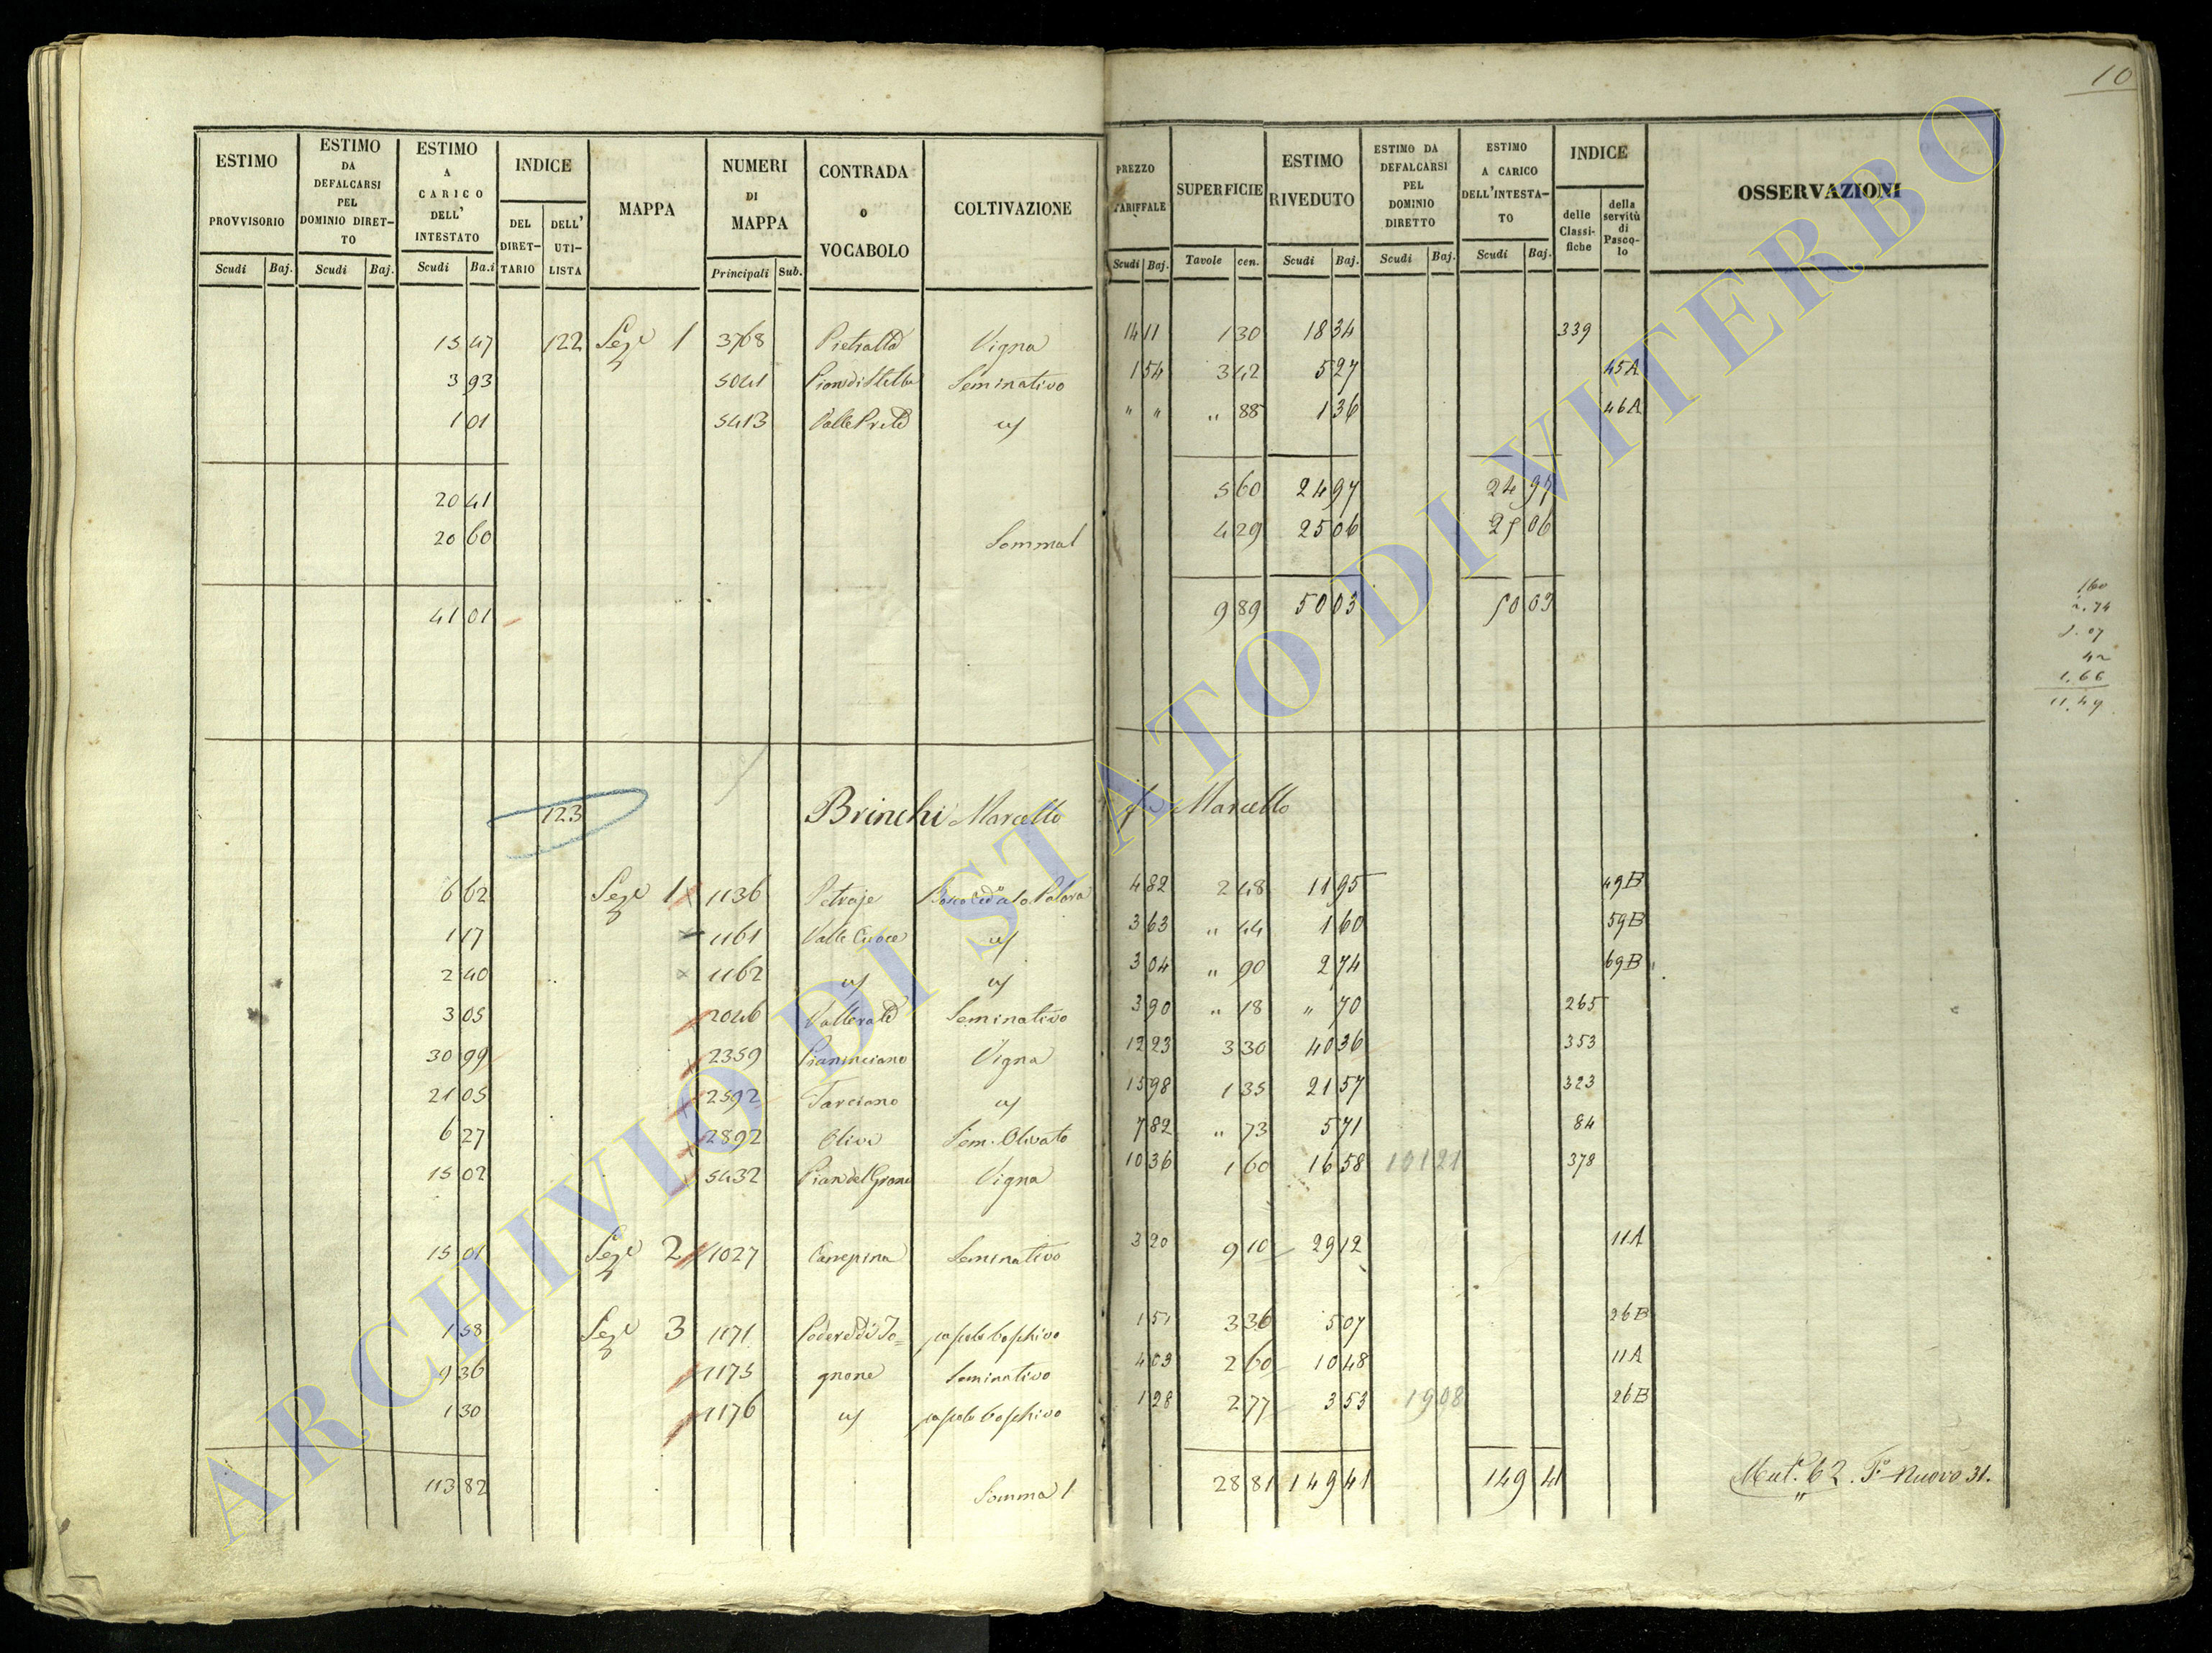 10
ESTIMO PROVVISORIO Scudi Baj. | ESTIMO DA DEFALCARSI PEL DOMINIO DIRET-TO Scudi Baj. | ESTIMO A CARICO DELL' INTESTATO Scudi Ba.i | INDICE DEL DIRET-TARIO DELL' UTI-LISTA | MAPPA | NUMERI DI MAPPA Principali Sub. | CONTRADA O VOCABOLO | COLTIVAZIONE | PREZZO TARIFFALE Scudi Baj. | SUPERFICIE Tavole cen. | ESTIMO RIVEDUTO Scudi Baj. | ESTIMO DA DEFALCARSI PEL DOMINIO DIRETTO Scudi Baj. | ESTIMO A CARICO DELL'INTESTA-TO Scudi Baj. | INDICE delle Classi-fiche della servitù di Pasco-lo | OSSERVAZIONI
15 47 122 Seze 1 3768 Vigna 14 11 1 30 18 34 339
3 93 5041 Seminativo 1 54 3 42 5 27 45A
1 01 5413 " " " 88 1 36 46A
20 41 5 60 24 97 24 97
20 60 Somma 4 29 25 06 25 06
41 01 9 89 50 03 50 03
160
2.74
42
1.66
11.49
123 Brinchi Marcello Marcello
6 62 Seze 1 1136 Petraje 4 82 2 48 11 95 49B
1 17 1161 3 63 " 44 1 60 59B
2 40 1162 3 04 " 90 2 74 69B
3 05 2046 Seminativo 3 90 " 18 " 70 265
30 99 2359 Pianinciano Vigna 12 23 3 30 40 36 353
21 05 2592 Tarciano 15 98 1 35 21 57 323
6 27 2892 Olivi Sem. Olivato 7 82 " 73 5 71 84
15 02 5432 Pian del Grano Vigna 10 36 1 60 16 58 101 21 378
15 01 Seze 2 1027 Canepina Seminativo 3 20 9 10 29 12 11A
1 58 Seze 3 1171 Podere di To= pascolo boschivo 1 51 3 36 5 07 26B
9 36 1175 gnone Seminativo 4 03 2 60 10 48 11A
1 30 1176 pascolo boschivo 1 28 2 77 3 53 19 08 26B
113 82 Somma 28 81 149 41 149 41 Mut. 62. F° Nuovo 31.
ARCHIVIO DI STATO DI VITERBO